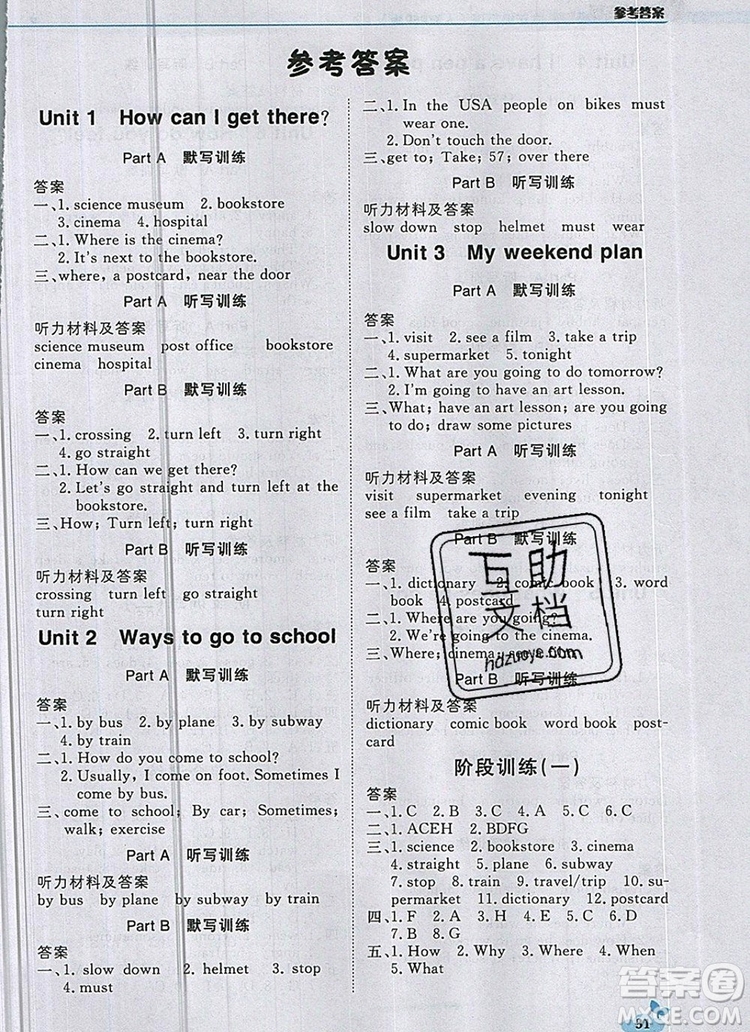 参考答案
参考答案
Unit 1 How can I get there?
Part A 默写训练
答案
一、1. science museum 2. bookstore
3. cinema 4. hospital
二、1. Where is the cinema?
2. It's next to the bookstore.
三、where, a postcard, near the door
Part A 听写训练
听力材料及答案
science museum post office bookstore
cinema hospital
Part B 默写训练
答案
一、1. crossing 2. turn left 3. turn right
4. go straight
二、1. How can we get there?
2. Let's go straight and turn left at the
bookstore.
三、How; Turn left; turn right
Part B 听写训练
听力材料及答案
crossing turn left go straight
turn right
Unit 2 Ways to go to school
Part A 默写训练
答案
一、1. by bus 2. by plane 3. by subway
4. by train
二、1. How do you come to school?
2. Usually, I come on foot. Sometimes I
come by bus.
三、come to school; By car; Sometimes;
walk; exercise
Part A 听写训练
听力材料及答案
by bus by plane by subway by train
Part B 默写训练
答案
一、1. slow down 2. helmet 3. stop
4. must
二、1. In the USA people on bikes must
wear one.
2. Don't touch the door.
三、get to; Take; 57; over there
Part B 听写训练
听力材料及答案
slow down stop helmet must wear
Unit 3 My weekend plan
Part A 默写训练
答案
一、1. visit 2. see a film 3. take a trip
4. supermarket 5. tonight
二、1. What are you going to do tomorrow?
2. I'm going to have an art lesson.
三、What; have an art lesson; are you going
to do; draw some pictures
Part A 听写训练
听力材料及答案
visit supermarket evening tonight
see a film take a trip
Part B 默写训练
答案
一、1. dictionary 2. comic book 3. word
book 4. postcard
二、1. Where are you going?
2. We're going to the cinema.
三、Where; cinema;
Part B 听写训练
听力材料及答案
dictionary comic book word book post-
card
阶段训练(一)
答案
一、1. C 2. B 3. A 4. C 5. B 6. C
二、1. ACEH 2. BDFG
三、1. science 2. bookstore 3. cinema
4. straight 5. plane 6. subway
7. stop 8. train 9. travel/trip 10. su-
permarket 11. dictionary 12. postcard
四、1. F 2. A 3. E 4. C 5. G 6. D
7. B 8. G
五、1. How 2. Why 3. Where 4. When
5. What
51
互助
文档
hdzuoye.com
答案圈
MXQE.COM